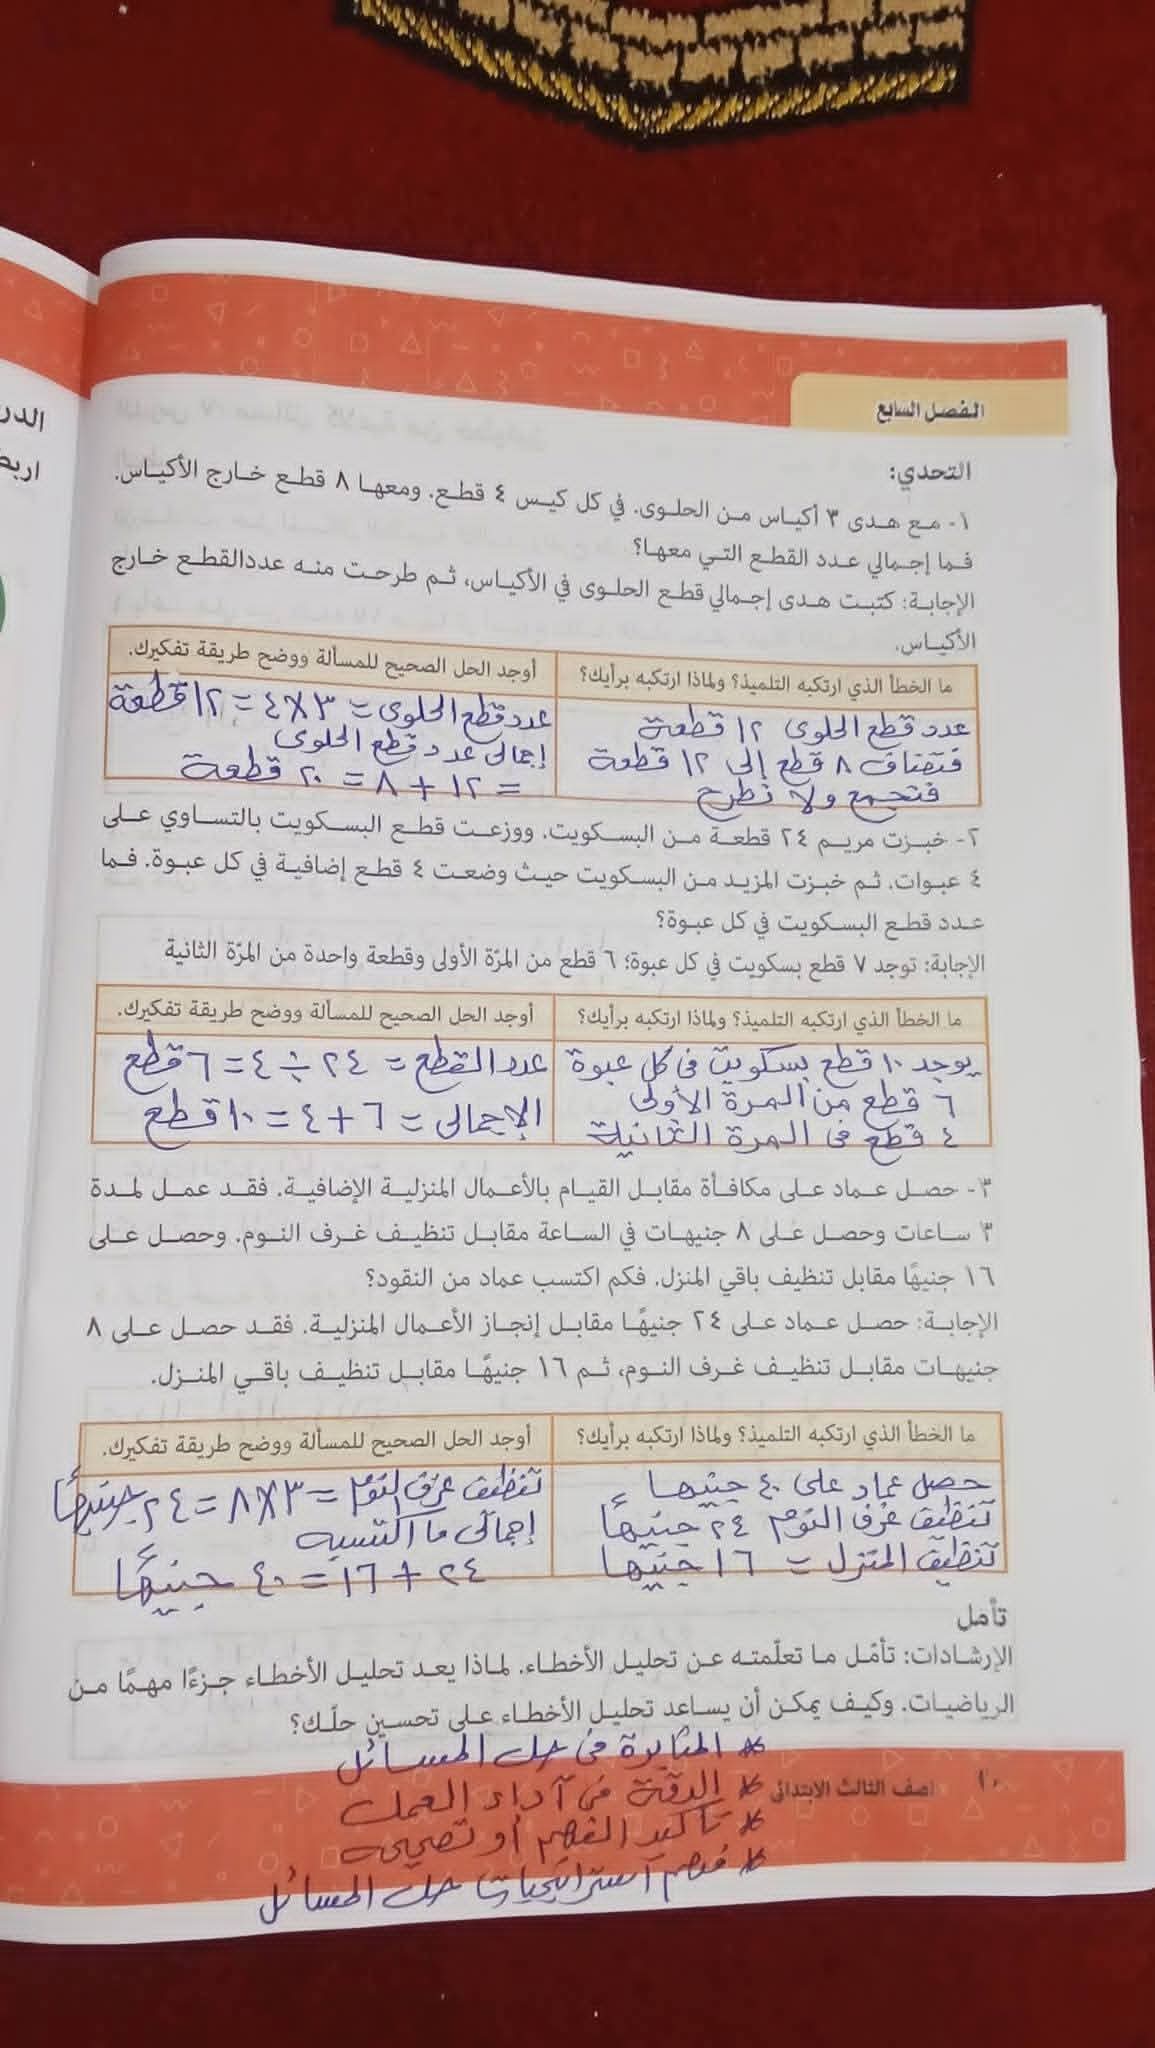 الدر
اربط
الفصل السابع
التحدي:
١- مع هدى ٣ أكياس من الحلوى. في كل كيس ٤ قطع. ومعها ٨ قطع خارج الأكياس.
فما إجمالي عدد القطع التي معها؟
الإجابة: كتبت هدى إجمالي قطع الحلوى في الأكياس، ثم طرحت منه عددالقطع خارج
الأكياس.
ما الخطأ الذي ارتكبه التلميذ؟ ولماذا ارتكبه برأيك؟
عدد قطع الحلوى ١٢ قطعة
فتضاف ٨ قطع إلى ١٢ قطعة
فتجمع ولا نطرح
أوجد الحل الصحيح للمسألة ووضح طريقة تفكيرك.
عدد قطع الحلوى = ٣ × ٤ = ١٢ قطعة
إجمالى عدد قطع الحلوى
= ١٢ + ٨ = ٢٠ قطعة
٢- خبزت مريم ٢٤ قطعة من البسكويت. ووزعت قطع البسكويت بالتساوي على
٤ عبوات. ثم خبزت المزيد من البسكويت حيث وضعت ٤ قطع إضافية في كل عبوة. فما
عدد قطع البسكويت في كل عبوة؟
الإجابة: توجد ٧ قطع بسكويت في كل عبوة؛ ٦ قطع من المرّة الأولى وقطعة واحدة من المرّة الثانية
ما الخطأ الذي ارتكبه التلميذ؟ ولماذا ارتكبه برأيك؟
يوجد ١٠ قطع بسكويت فى كل عبوة
٦ قطع من المرة الأولى
٤ قطع فى المرة الثانية
أوجد الحل الصحيح للمسألة ووضح طريقة تفكيرك.
عدد القطع = ٢٤ ÷ ٤ = ٦ قطع
الإجمالى = ٦ + ٤ = ١٠ قطع
٣- حصل عماد على مكافأة مقابل القيام بالأعمال المنزلية الإضافية. فقد عمل لمدة
٣ ساعات وحصل على ٨ جنيهات في الساعة مقابل تنظيف غرف النوم. وحصل على
١٦ جنيهًا مقابل تنظيف باقي المنزل. فكم اكتسب عماد من النقود؟
الإجابة: حصل عماد على ٢٤ جنيهًا مقابل إنجاز الأعمال المنزلية. فقد حصل على ٨
جنيهات مقابل تنظيف غرف النوم، ثم ١٦ جنيهًا مقابل تنظيف باقي المنزل.
ما الخطأ الذي ارتكبه التلميذ؟ ولماذا ارتكبه برأيك؟
حصل عماد على ٤٠ جنيها
تنظيف غرف النوم ٢٤ جنيهاً
تنظيف المنزل = ١٦ جنيها
أوجد الحل الصحيح للمسألة ووضح طريقة تفكيرك.
تنظيف غرف النوم = ٣ × ٨ = ٢٤ جنيهاً
إجمالى ما اكتسبه
٢٤ + ١٦ = ٤٠ جنيهاً
تأمل
الإرشادات: تأمّل ما تعلّمته عن تحليل الأخطاء. لماذا يعد تحليل الأخطاء جزءًا مهمًا من
الرياضيات. وكيف يمكن أن يساعد تحليل الأخطاء على تحسين حلّك؟
* المثابرة فى حل المسائل
* الدقة فى آداء العمل
* تأكيد الفهم أو تصحيحه
* فهم استراتيجيات حل المسائل
١٠ الصف الثالث الابتدائى